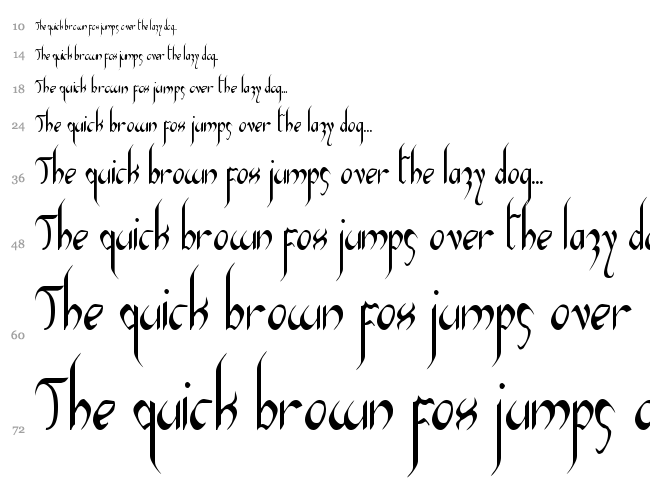 10 The quick brown fox jumps over the lazy dog...
14 The quick brown fox jumps over the lazy dog...
18 The quick brown fox jumps over the lazy dog...
24 The quick brown fox jumps over the lazy dog...
36 The quick brown fox jumps over the lazy dog...
48 The quick brown fox jumps over the lazy do
60 The quick brown fox jumps over
72 The quick brown fox jumps o